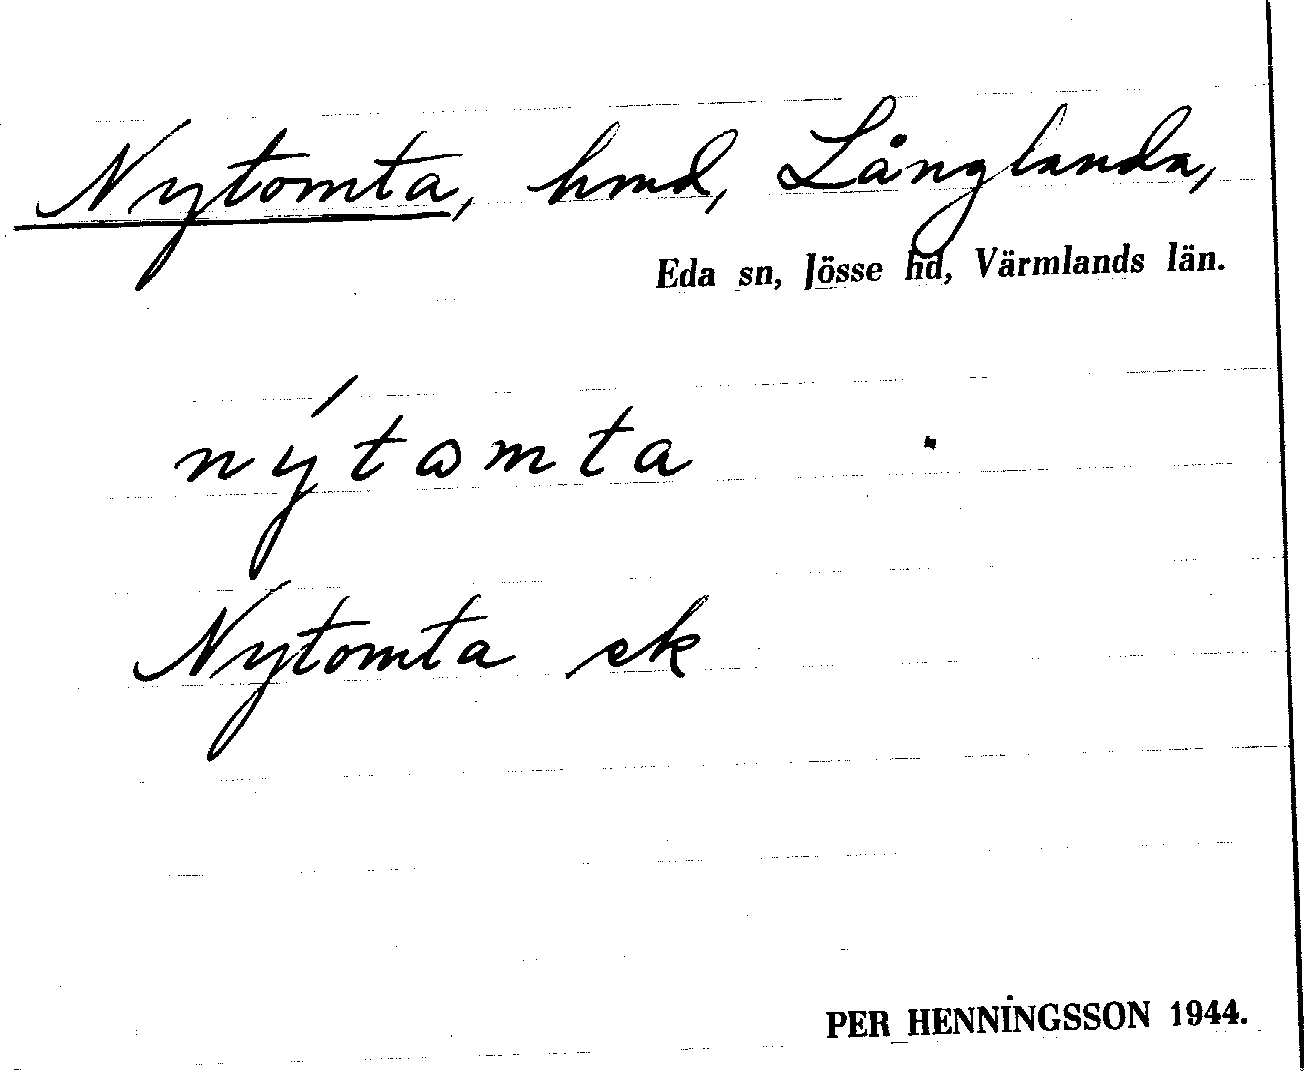 Nytomta, hmd, Långlanda,
Eda sn, Jösse hd, Värmlands län.
nýtωmta
Nytomta ek
PER HENNINGSSON 1944.